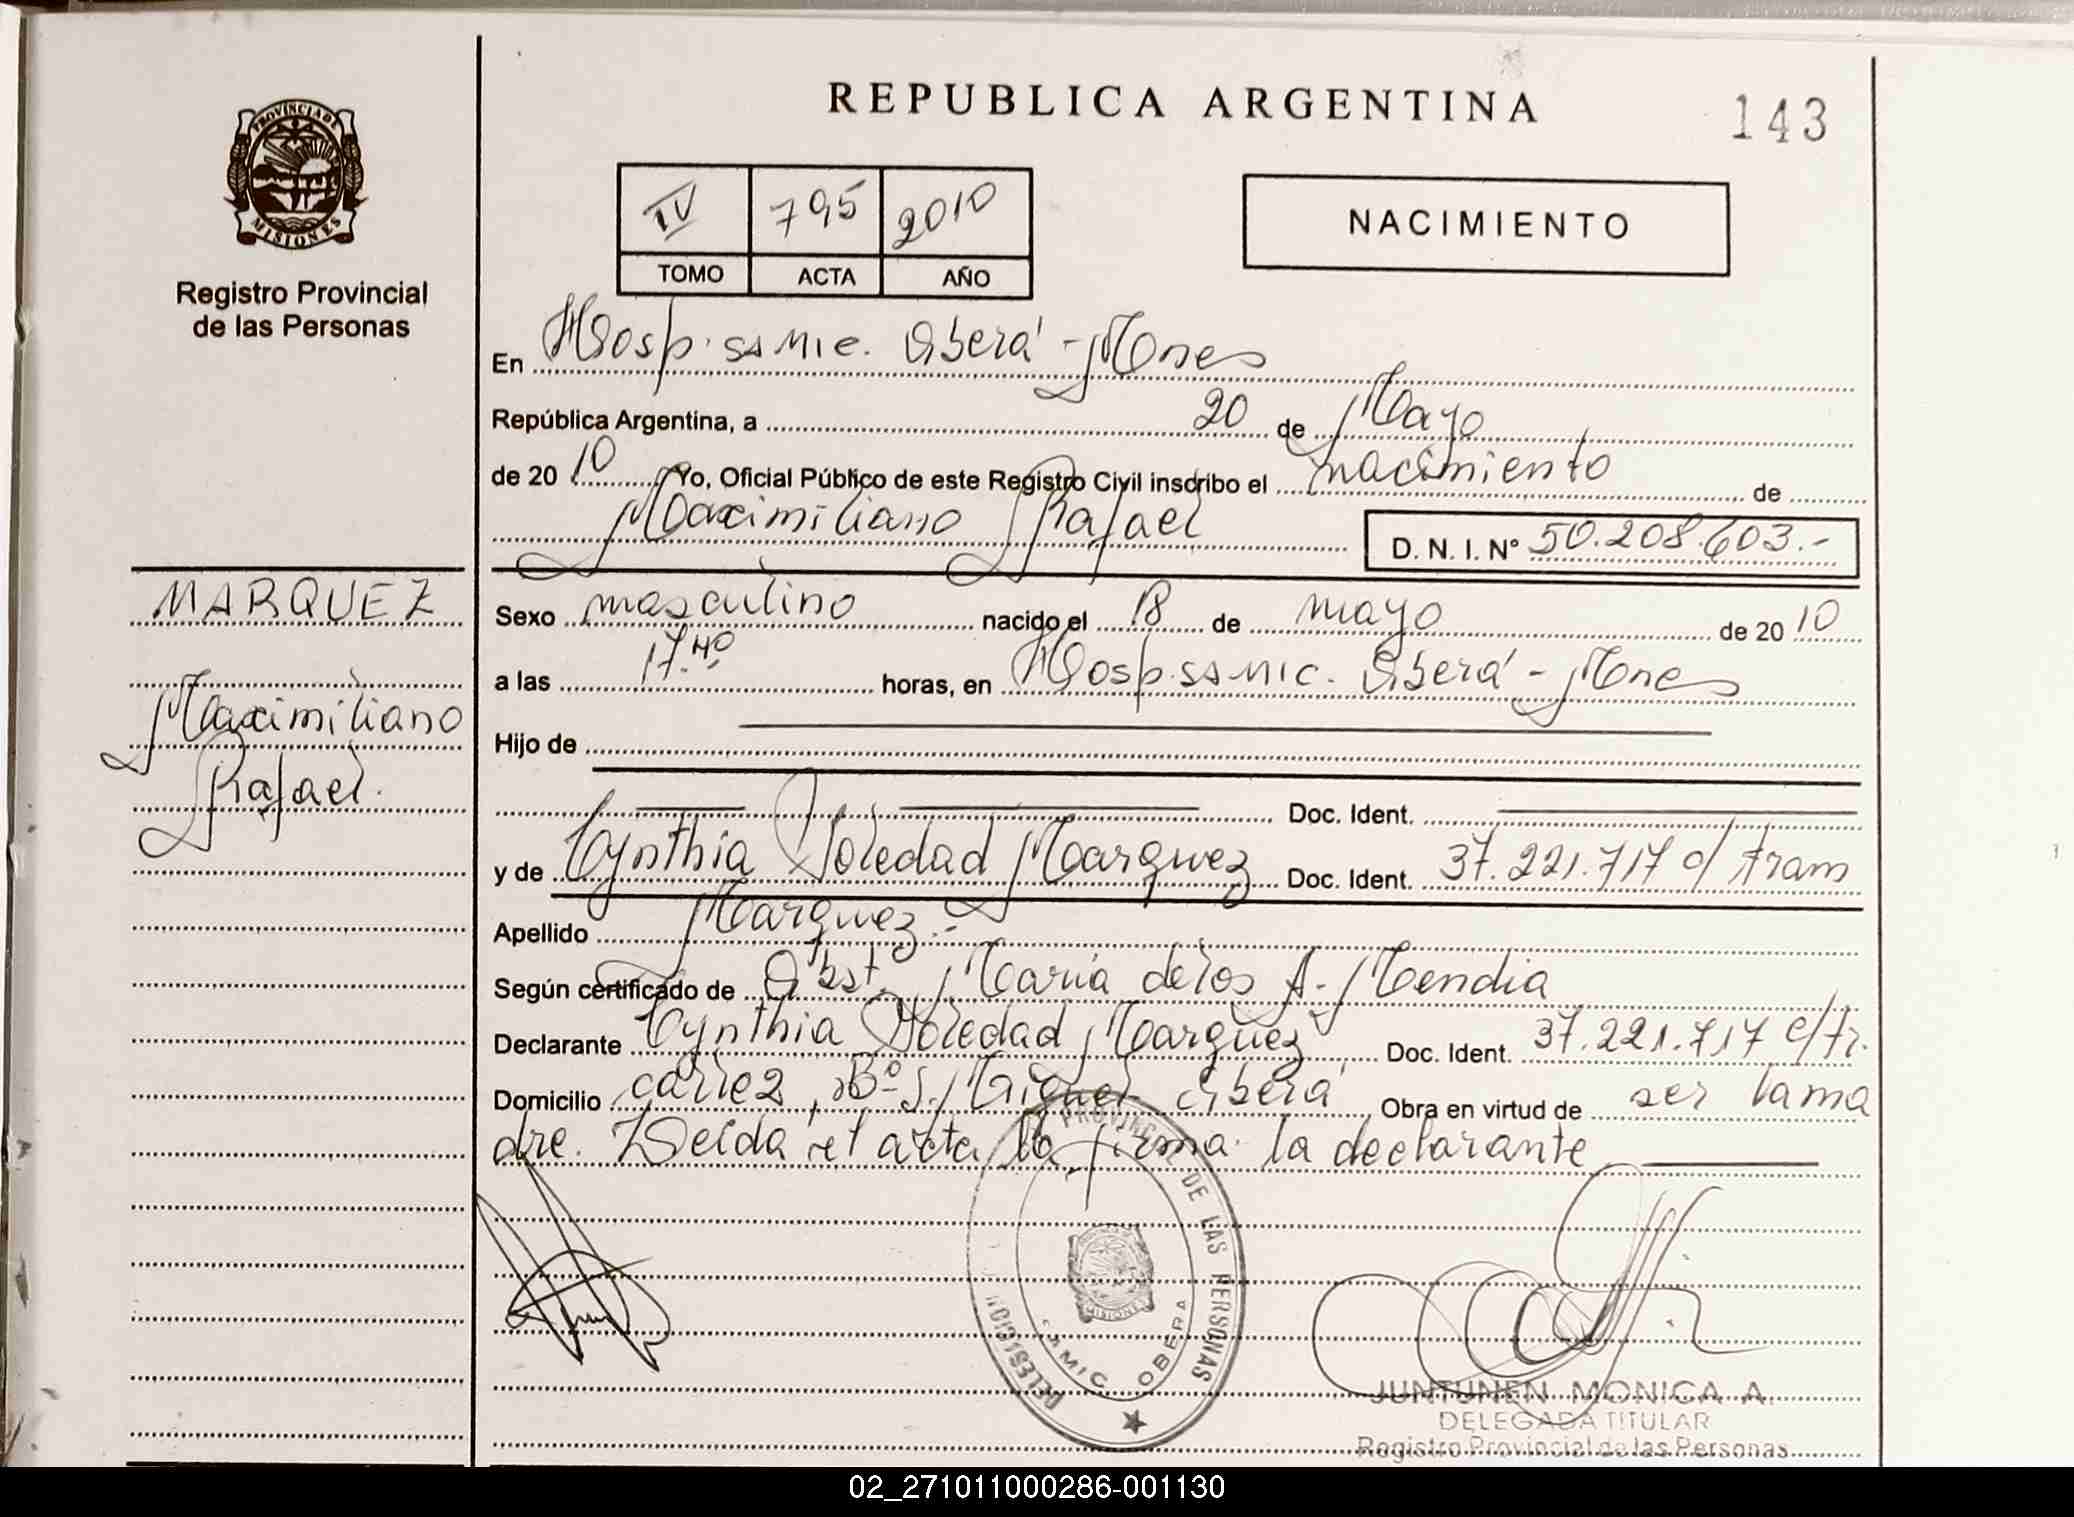 REPUBLICA ARGENTINA
143
PROVINCIA DE
MISIONES
Registro Provincial
de las Personas
IV 795 2010
TOMO ACTA AÑO
NACIMIENTO
En Hosp. Samic. Oberá - Mnes
República Argentina, a 20 de Mayo
de 20 10 Yo, Oficial Público de este Registro Civil inscribo el nacimiento de
Maximiliano Rafael D. N. I. Nº 50.208.603.-
MARQUEZ
Maximiliano
Rafael.
Sexo masculino nacido el 18 de mayo de 20 10
a las 17.40 horas, en Hosp. Samic. Oberá - Mnes
Hijo de
Doc. Ident.
y de Cynthia Soledad Marquez Doc. Ident. 37.221.717 c/ tram
Apellido Marquez.-
Según certificado de Obst. Maria de los A. Mendia
Declarante Cynthia Soledad Marquez Doc. Ident. 37.221.717 c/tr.
Domicilio calle 2, Bº S. Miguel Oberá Obra en virtud de ser la ma
dre. Leída el acta la firma la declarante
PROVINCIAL DE LAS PERSONAS
DELEGACION
SAMIC OBERA
JUNTUNEN MONICA A.
DELEGADA TITULAR
Registro Provincial de las Personas
02_271011000286-001130